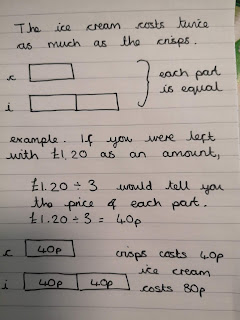 The ice cream costs twice
as much as the crisps.
c
each part
is equal
i
example. If you were left
with £1.20 as an amount,
£1.20 ÷ 3 would tell you
the price of each part.
£1.20 ÷ 3 = 40p
c 40p crisps costs 40p
ice cream
i 40p 40p costs 80p